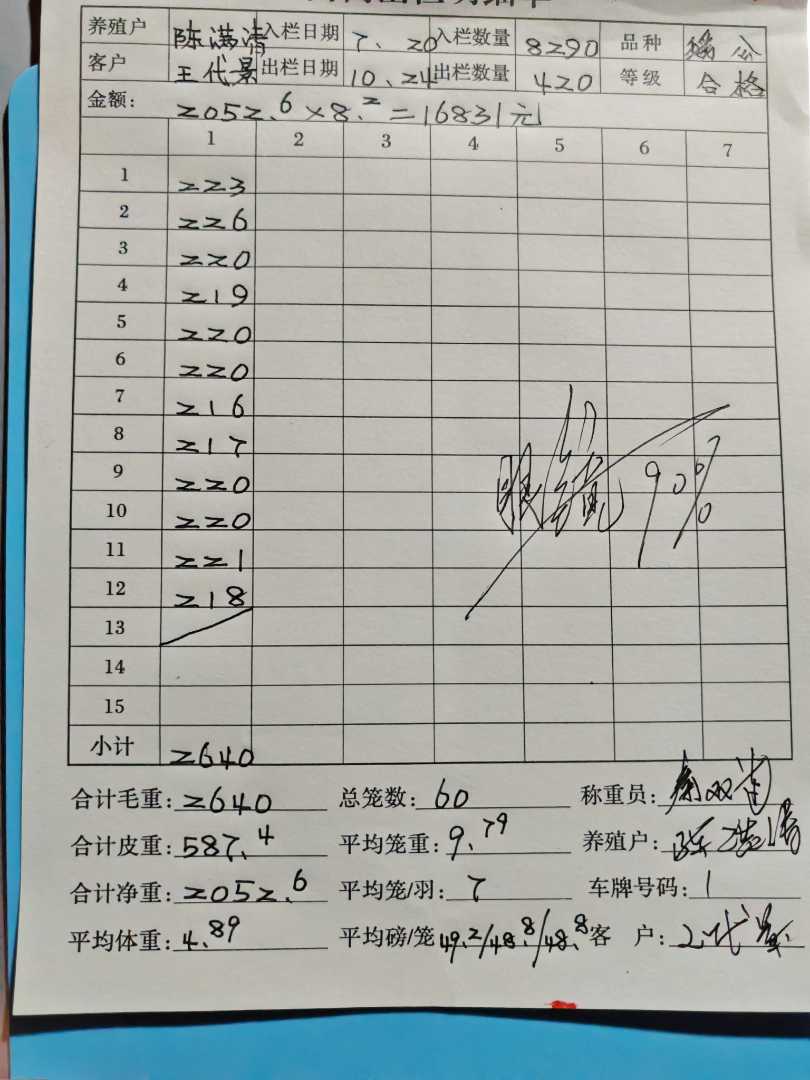 养殖户 陈满清 入栏日期 7、20 入栏数量 8290 品种 公
客户 王代景 出栏日期 10、24 出栏数量 420 等级 合格
金额: 2052.6×8.2=16831元
1 2 3 4 5 6 7
1 223
2 226
3 220
4 219
5 220
6 220
7 216
8 217
9 220
10 220
11 221
12 218
眼 90%
13
14
15
小计 2640
合计毛重: 2640 总笼数: 60 称重员:
合计皮重: 587.4 平均笼重: 9.79 养殖户: 陈满清
合计净重: 2052.6 平均笼/羽: 7 车牌号码: 1
平均体重: 4.89 平均磅/笼 49.2/48.8/48.8 客 户: 王代景